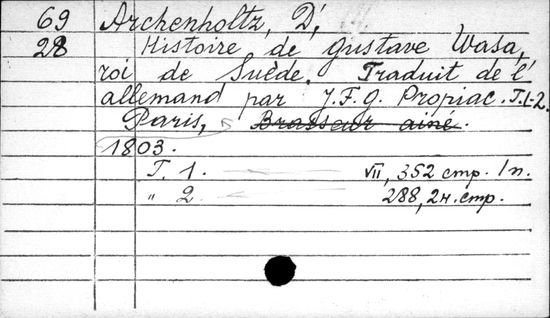 69 Archenholtz, D',
28 Histoire de Gustave Wasa,
roi de Suède. Traduit de l'
allemand par J.F.G. Propiac. T.1-2.
Paris, Brasseur ainé.
1803.
T. 1. — VII, 352 cmp. 1 п.
" 2. — 288, 24. cmp.